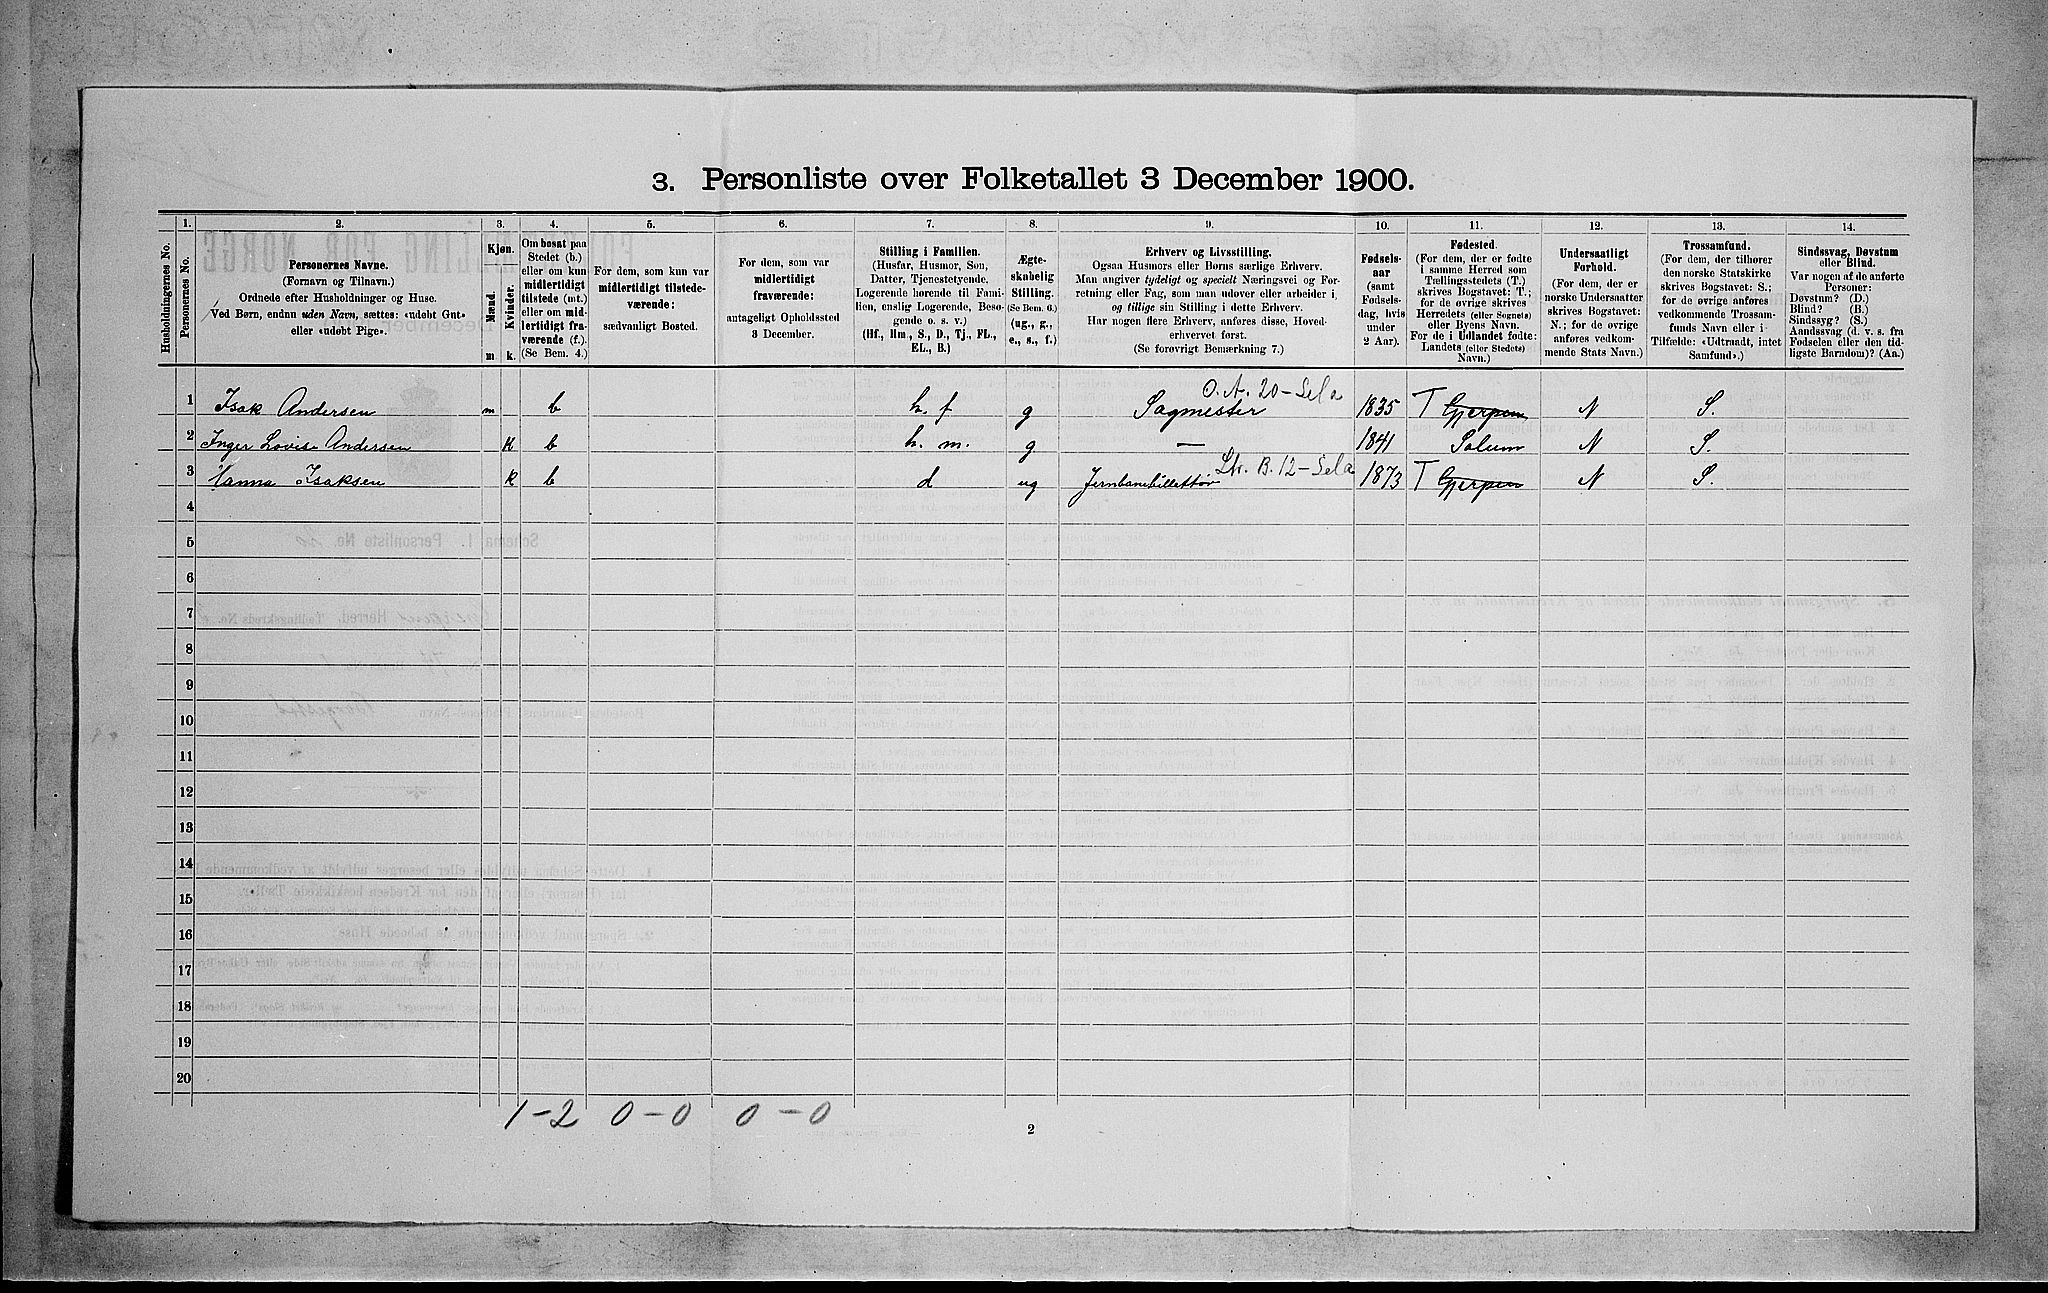 3. Personliste over Folketallet 3 December 1900.
1. 2. 3. 4. 5. 6. 7. 8. 9. 10. 11. 12. 13. 14.
Husholdningernes No.
Personernes No.
Personernes Navne.
(Fornavn og Tilnavn.)
Ordnede efter Husholdninger og Huse.
Ved Børn, endnu uden Navn, sættes: «udøbt Gut»
eller «udøbt Pige».
Kjøn.
Mænd.
Kvinder.
m k.
Om bosat paa
Stedet (b.)
eller om kun
midlertidigt
tilstede (mt.)
eller om mid-
lertidigt fra-
værende (f.)
(Se Bem. 4.)
For dem, som kun var
midlertidigt tilstede-
værende:
sædvanligt Bosted.
For dem, som var
midlertidigt
fraværende:
antageligt Opholdssted
3 December.
Stilling i Familien.
(Husfar, Husmor, Søn,
Datter, Tjenestetyende,
Logerende hørende til Fami-
lien, enslig Logerende, Besø-
gende o. s. v.)
(Hf., Hm., S., D., Tj., FL.,
EL., B.)
Ægte-
skabelig
Stilling.
(Se Bem. 6.)
(ug., g.,
e., s., f.)
Erhverv og Livsstilling.
Ogsaa Husmors eller Børns særlige Erhverv.
Man angiver tydeligt og specielt Næringsvei og For-
retning eller Fag, som man udover eller arbeider i,
og tillige sin Stilling i dette Erhverv.
Har nogen flere Erhverv, anføres disse, Hoved-
erhvervet først.
(Se forøvrigt Bemærkning 7.)
Fødsels-
aar
(samt
Fødsels-
dag, hvis
under
2 Aar).
Fødested.
(For dem, der er fødte
i samme Herred som
Tællingsstedets (T.)
skrives Bogstavet: T.;
for de øvrige skrives
Herredets (eller Sognets)
eller Byens Navn.
For de i Udlandet fødte:
Landets (eller Stedets)
Navn.)
Undersaatligt
Forhold.
(For dem, der er
norske Undersaatter
skrives Bogstavet:
N.; for de øvrige
anføres vedkom-
mende Stats Navn.)
Trossamfund.
(For dem, der tilhører
den norske Statskirke
skrives Bogstavet: S.;
for de øvrige anføres
vedkommende Trossam-
funds Navn eller i
Tilfælde: «Udtraadt, intet
Samfund».)
Sindssvag, Døvstum
eller Blind.
Var nogen af de anførte
Personer:
Døvstum? (D.)
Blind? (B.)
Sindssyg? (S.)
Aandssvag (d. v. s. fra
Fødselen eller den tid-
ligste Barndom)? (Aa.)
O. A. 20 – Sela
1 Isak Andersen m b h. f g Sagmester 1835 T Gjerpen N S.
2 Inger Lovise Andersen k b h. m. g — 1841 Solum N S.
Str. B. 12 – Sela
3 Hanna Isaksen k b d ug Jernbanebillettør 1873 T Gjerpen N S.
4
5
6
7
8
9
10
11
12
13
14
15
16
17
18
19
20
1 – 2 0 – 0 0 – 0
2